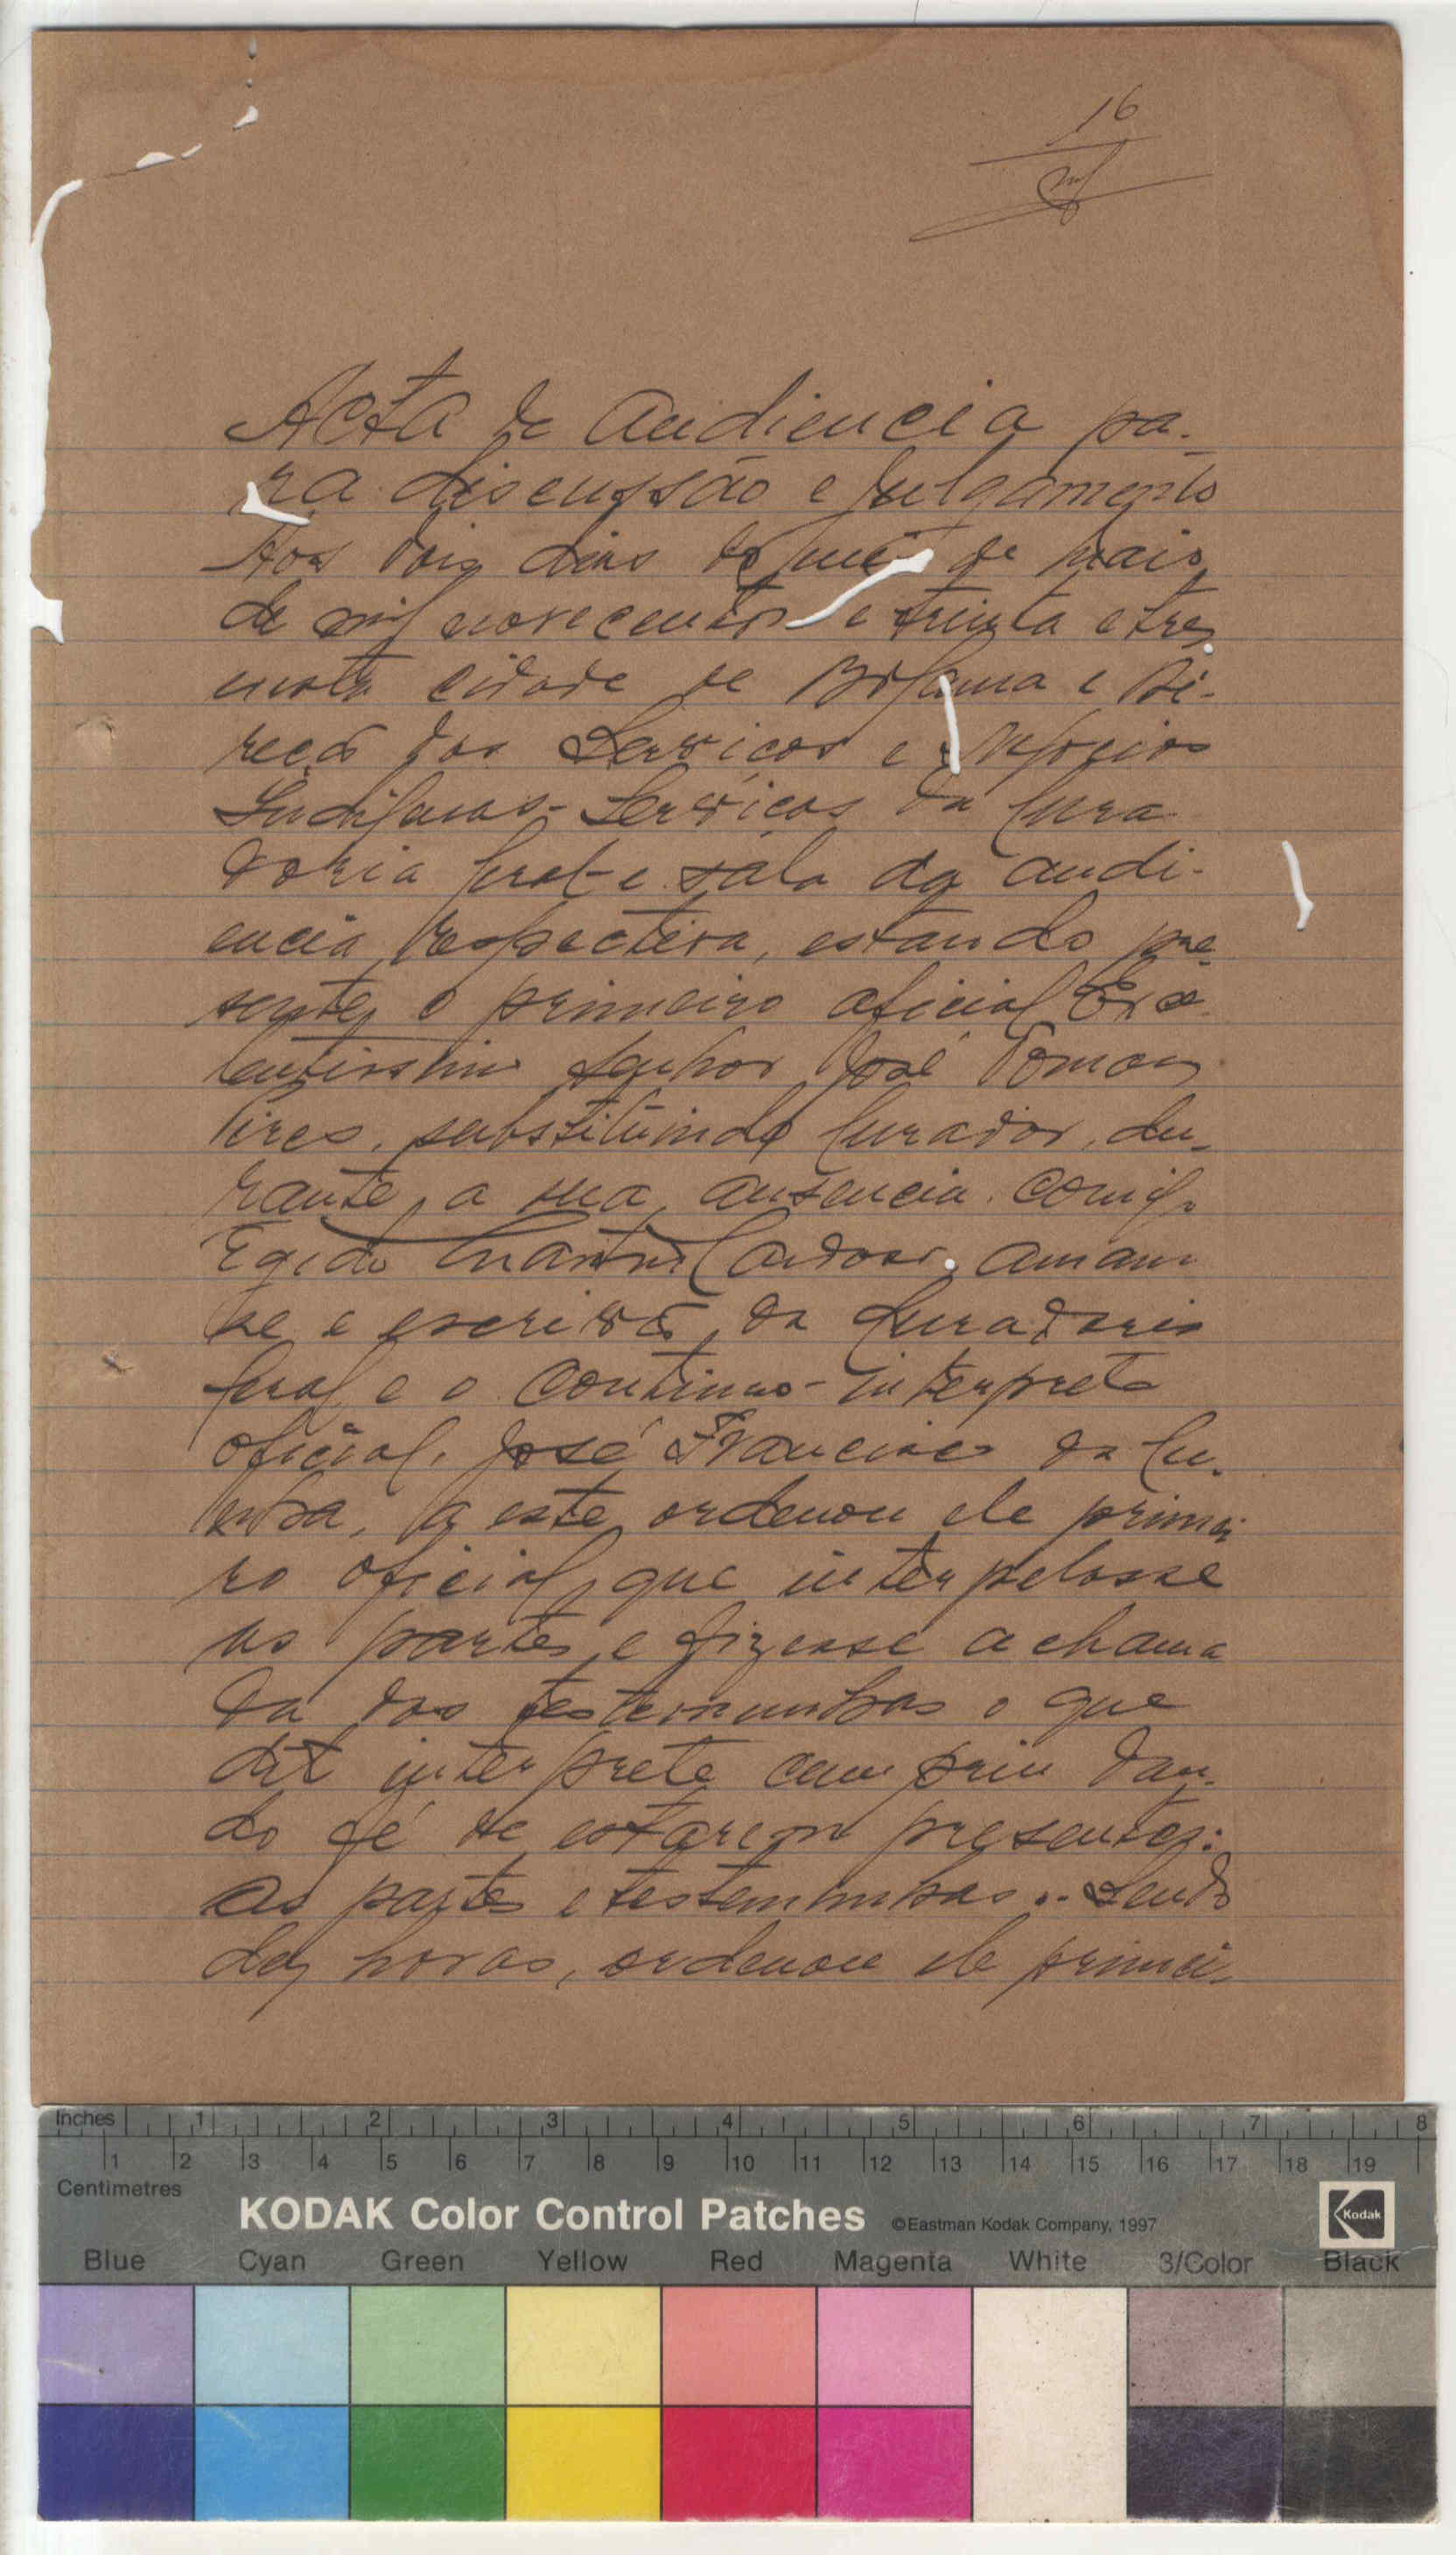 16
Acta de audiencia pa-
ra discussão e julgamento
Aos dois dias do mês de maio
de mil novecentos e trinta e tres
nesta cidade de Bolama e Di-
reção dos Serviços e Negocios
Indigenas - Serviços da Cura
doria Geral e sala da audi-
encia respectiva, estando pre-
sente o primeiro oficial Exce
lentissimo Senhor José Tomaz
Pires, substituindo Curador, du-
rante a sua ausencia. comigo
Egido Cardoso, amanu
se e escrivão da Curadoria
Geral e o continuo-interprete
oficial, José Francisco da Cu-
nha, a este ordenou ele primei
ro oficial, que interpelasse
as partes e fizesse a chama
da das testemunhas o que
dit interprete cumpriu dan-
do fé de estarem presentes:
As partes e testemunhas.. Sendo
dez horas, ordenou ele primei-
Inches 1 2 3 4 5 6 7 8
1 2 3 4 5 6 7 8 9 10 11 12 13 14 15 16 17 18 19
Centimetres
KODAK Color Control Patches ©Eastman Kodak Company, 1997 Kodak
Blue Cyan Green Yellow Red Magenta White 3/Color Black